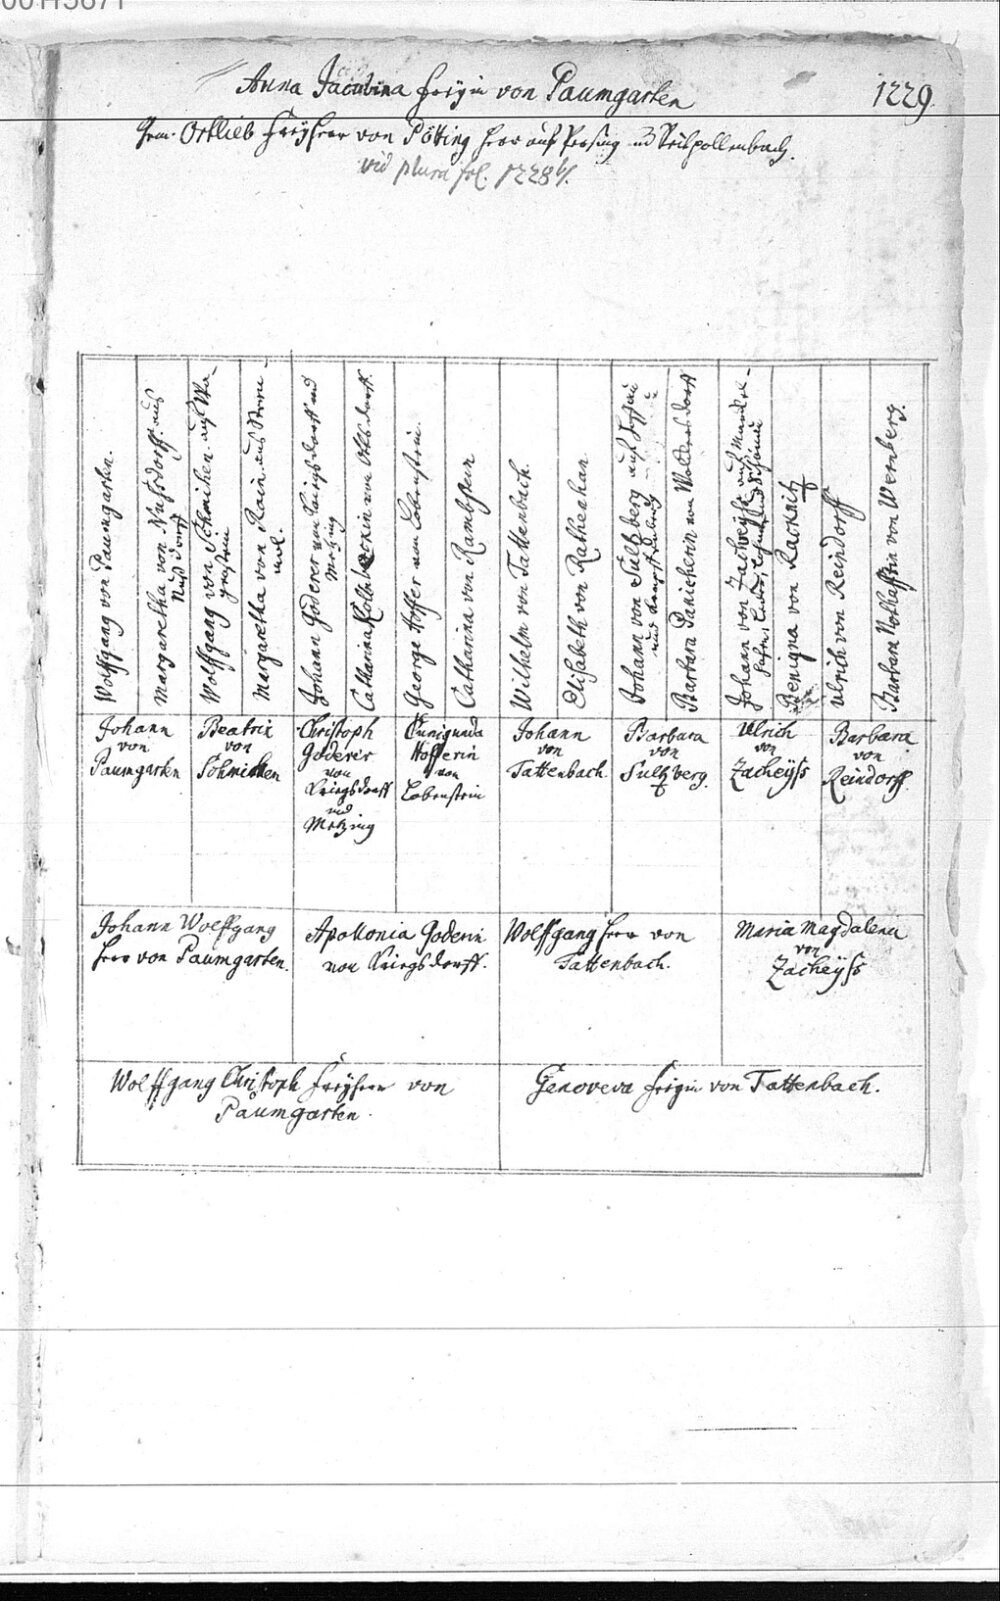 Anna Jacobina Freyin von Paumgarten
1229.
Gem. Ortlieb Freyherr von Pötting Herr auf Persing
vid plura fol. 1228 b/.
Wolffgang von Paumgarten.
Margaretha von Nußdorff. aus
Nußdorff
Wolffgang von Schmihen auf Wa-
Margaretha von Rain. aus
Johann Goderer von Kriegsdorff und
Metzing
Catharina
George Hoffer von Lobenstein.
Catharina von Rambseur
Wilhelm von Tattenbach.
Elisabeth von Ratheahan
Johann von Sultzberg auf
Barbara Panicherin von Wolckersdorff
Johann von Zacheÿß auf
Benigna von Racknitz
Ulrich von Reindorff
Barbara Nothafftin von Wernberg.
Johann
von
Paumgarten
Beatrix
von
Schmichen
Christoph
Goderer
von
Kriegsdorff
und
Metzing
Cunigunda
Hofferin
von
Lobenstein
Johann
von
Tattenbach
Barbara
von
Sultzberg.
Ulrich
von
Zacheÿß
Barbara
von
Reindorff.
Johann Wolffgang
Herr von Paumgarten.
Apollonia Goderin
von Kriegsdorff.
Wolffgang Herr von
Tattenbach.
Maria Magdalena
von
Zacheÿß
Wolffgang Christoph Freÿherr von
Paumgarten.
Genoveva Freyin von Tattenbach.